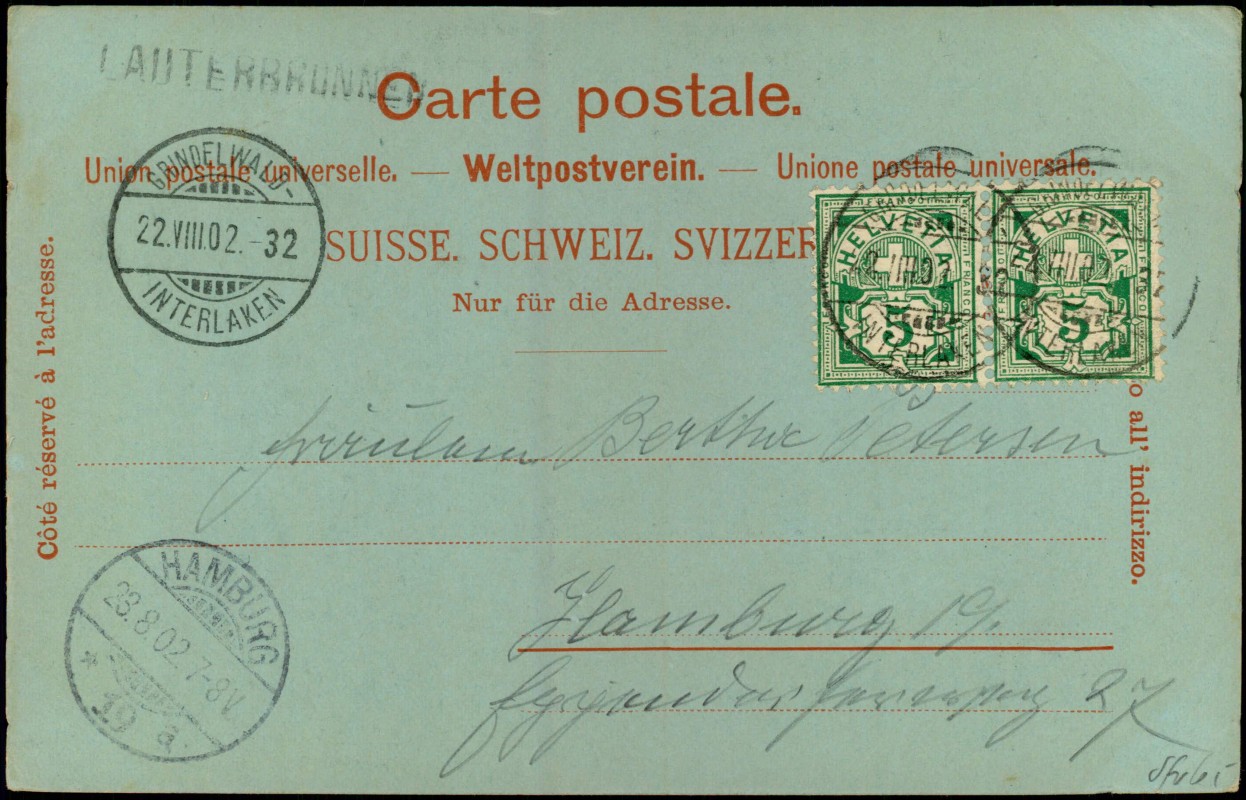 LAUTERBRUNNEN
Carte postale.
Union postale universelle. — Weltpostverein. — Unione postale universale.
GRINDELWALD-
22.VIII.02.-32
INTERLAKEN
SUISSE. SCHWEIZ. SVIZZER
Nur für die Adresse.
FRANCO
HELVETIA
5
INTERLAKEN
FRANCO
HELVETIA
5
INTERLAKEN
Côté réservé à l'adresse.
o all' indirizzo.
Fräulein Bertha Petersen
Hamburg 19.
27
HAMBURG
23.8.02.7-8V.
* 19 a.